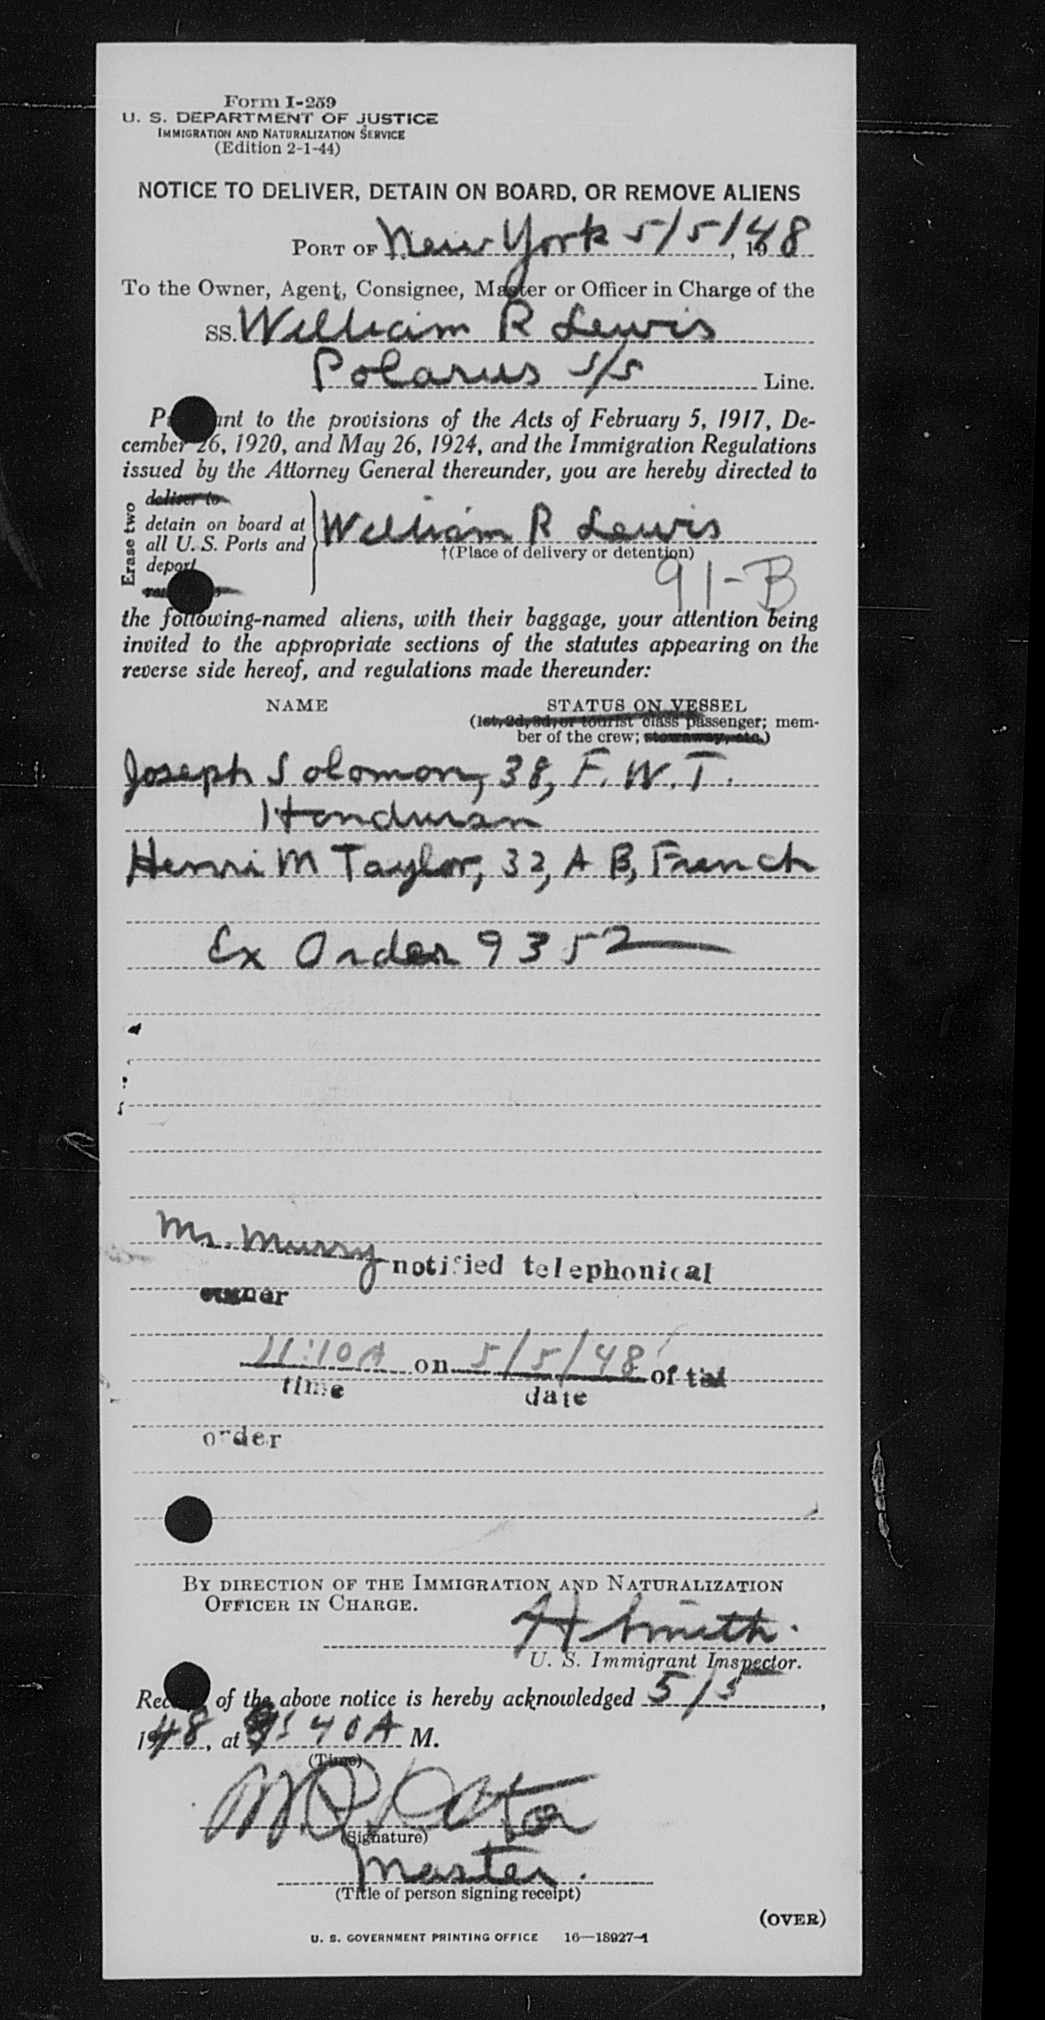 Form I-259
U. S. DEPARTMENT OF JUSTICE
IMMIGRATION AND NATURALIZATION SERVICE
(Edition 2-1-44)
NOTICE TO DELIVER, DETAIN ON BOARD, OR REMOVE ALIENS
PORT OF New York 5/5/48, 19
To the Owner, Agent, Consignee, Master or Officer in Charge of the
SS. William R Lewis
Polarus S/S Line.
to the provisions of the Acts of February 5, 1917, De-
cember 26, 1920, and May 26, 1924, and the Immigration Regulations
issued by the Attorney General thereunder, you are hereby directed to
Erase two
deliver to
detain on board at
all U. S. Ports and
deport
William R Lewis
†(Place of delivery or detention)
91-B
the following-named aliens, with their baggage, your attention being
invited to the appropriate sections of the statutes appearing on the
reverse side hereof, and regulations made thereunder:
NAME STATUS ON VESSEL
(1st, 2d, 3d, or tourist class passenger; mem-
ber of the crew; stowaway, etc.)
Joseph Solomon, 38, F. W. T.
Honduran
Henri M Taylor, 32, A B, French
Ex Order 9352
Mr. Murry notified telephonical
owner
11:10A on 5/5/48 of
time date
order
BY DIRECTION OF THE IMMIGRATION AND NATURALIZATION
OFFICER IN CHARGE.
H Smith.
U. S. Immigrant Inspector.
of the above notice is hereby acknowledged 5/5,
1948, at 9:40A M.
(Time)
(Signature)
Master.
(Title of person signing receipt)
(OVER)
U. S. GOVERNMENT PRINTING OFFICE 16—18927-1